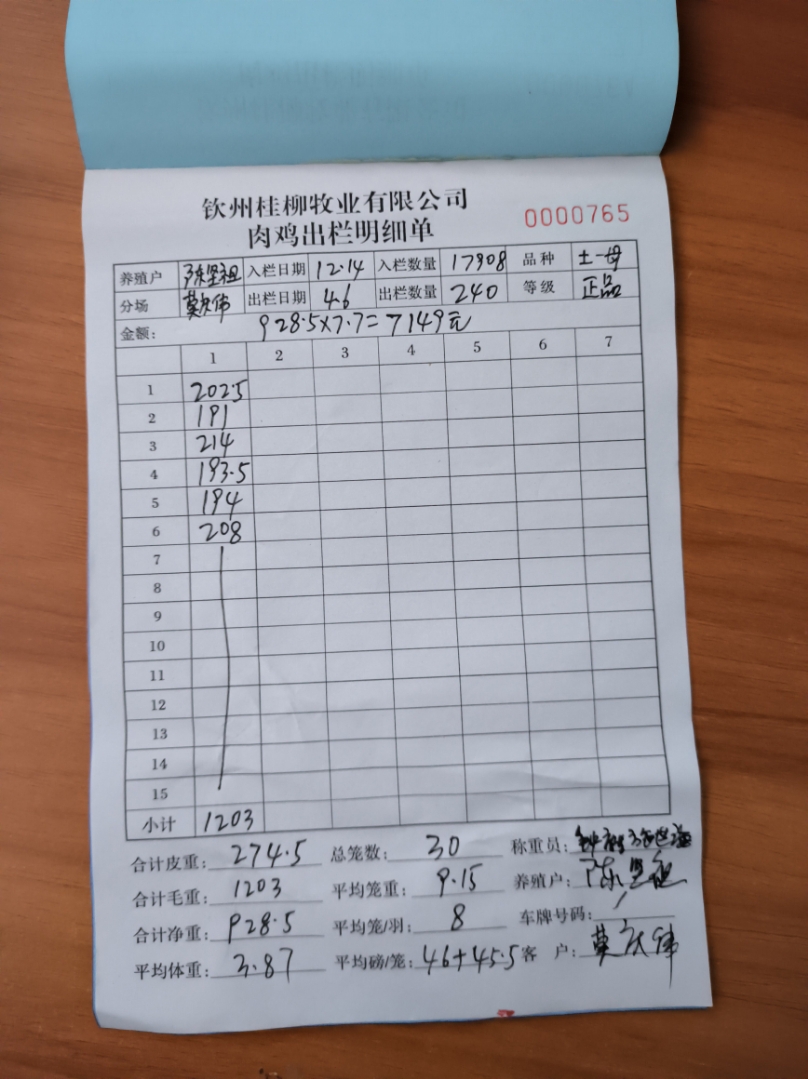 钦州桂柳牧业有限公司
肉鸡出栏明细单
0000765
养殖户 陈坚祖 入栏日期 12.14 入栏数量 17908 品种 土-母
分场 出栏日期 4.6 出栏数量 240 等级 正品
金额: 928.5×7.7=7149元
1 2 3 4 5 6 7
1 202.5
2 191
3 214
4 193.5
5 194
6 208
7
8
9
10
11
12
13
14
15
小计 1203
合计皮重: 274.5 总笼数: 30 称重员:
合计毛重: 1203 平均笼重: 9.15 养殖户: 陈坚祖
合计净重: 928.5 平均笼/羽: 8 车牌号码: /
平均体重: 3.87 平均磅/笼: 46+45.5 客 户: